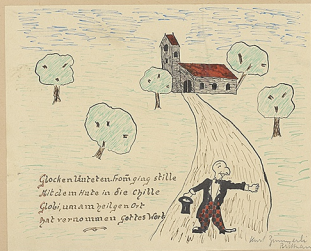 Glocken läuteten, from̄ ging stille
Mit dem Hute in die Chille
Globi, um am heilgen Ort
hat vernommen Gottes Wort